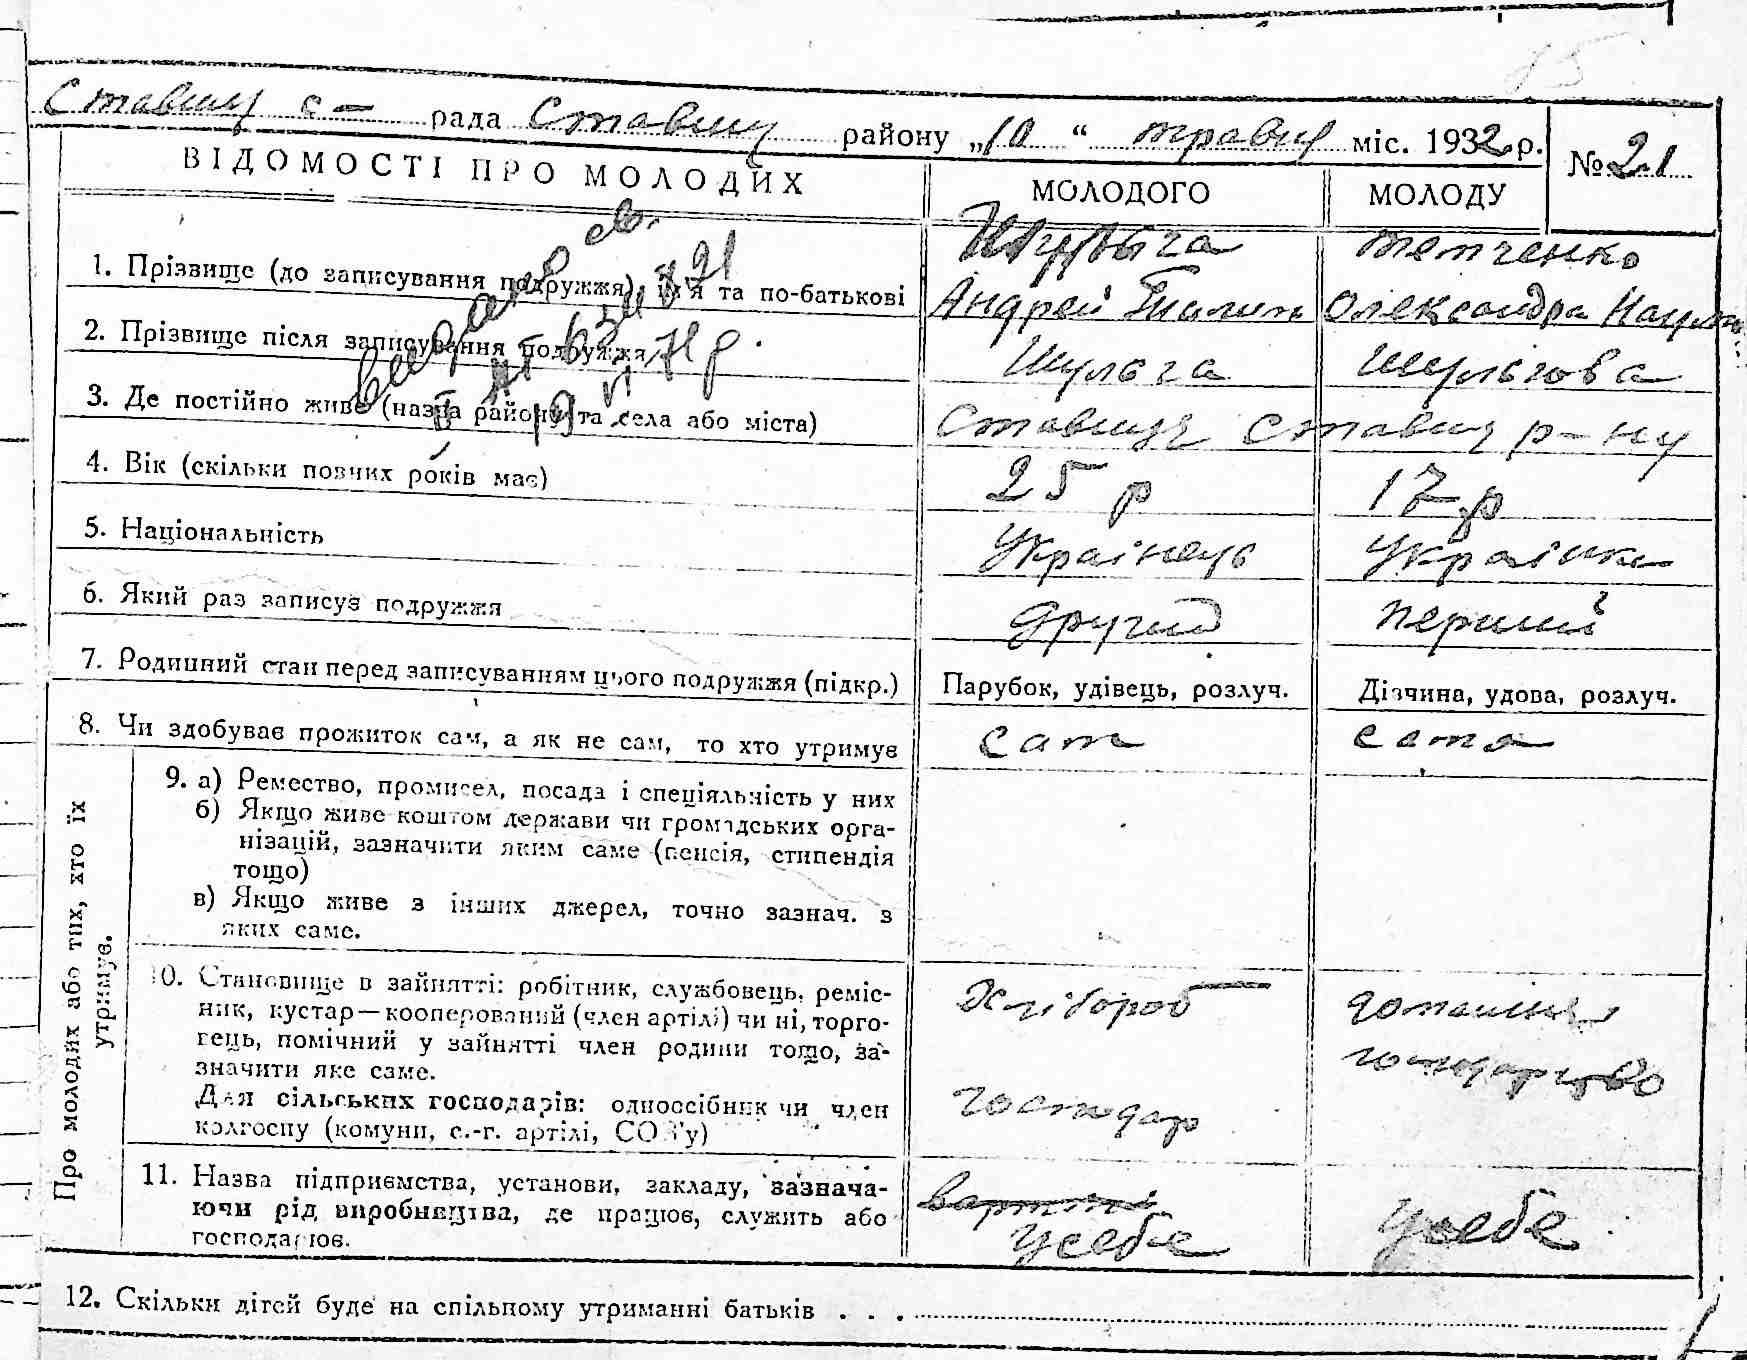 с - рада район​у „10“ міс. 1932 р.
№ 21
ВІДОМОСТІ ПРО МОЛОДИХ
МОЛОДОГО
МОЛОДУ
1. Прізвище (до записування подружжя), ім'я та по-батькові
Андрей
Олександра
2. Прізвище після записування подружжя
Шульга
Шульгова
3. Де постійно живе (назва району та села або міста)
р-ну
4. Вік (скільки повних років має)
25 р
17 р
5. Національність
Українець
Українка
6. Який раз записує подружжя
другий
перший
7. Родинний стан перед записуванням цього подружжя (підкр.)
Парубок, удівець, розлуч.
Дівчина, удова, розлуч.
8. Чи здобуває прожиток сам, а як не сам, то хто утримує
сам
сама
Про молодих або тих, хто їх
утримує.
9. а) Ремество, промисел, посада і спеціяльність у них
б) Якщо живе коштом держави чи громадських орга-
нізацій, зазначити яким саме (пенсія, стипендія
тощо)
в) Якщо живе з інших джерел, точно зазнач. з
яких саме.
10. Становище в зайнятті: робітник, службовець, реміс-
ник, кустар—кооперований (член артілі) чи ні, торго-
вець, помічний у зайнятті член родини тощо, за-
значити яке саме.
Для сільських господарів: одноосібник чи член
колгоспу (комуни, с.-г. артілі, СОЗ'у)
Хлібороб
господар
домашнє
господарство
11. Назва підприємства, установи, закладу, зазнача-
ючи рід виробництва, де працює, служить або
господарює.
У себе
У себе
12. Скільки дітей буде на спільному утриманні батьків . . .